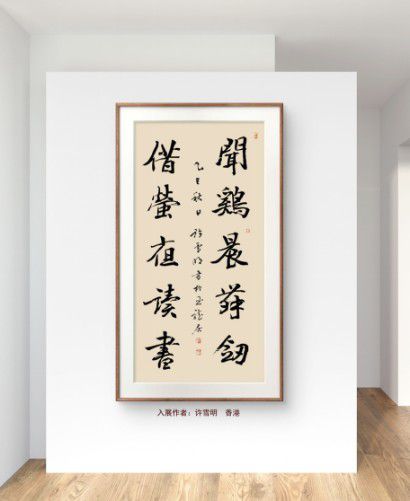 聞鷄晨舞劍
借螢夜讀書
乙巳秋日 許雪明書於
入展作者：许雪明 香港